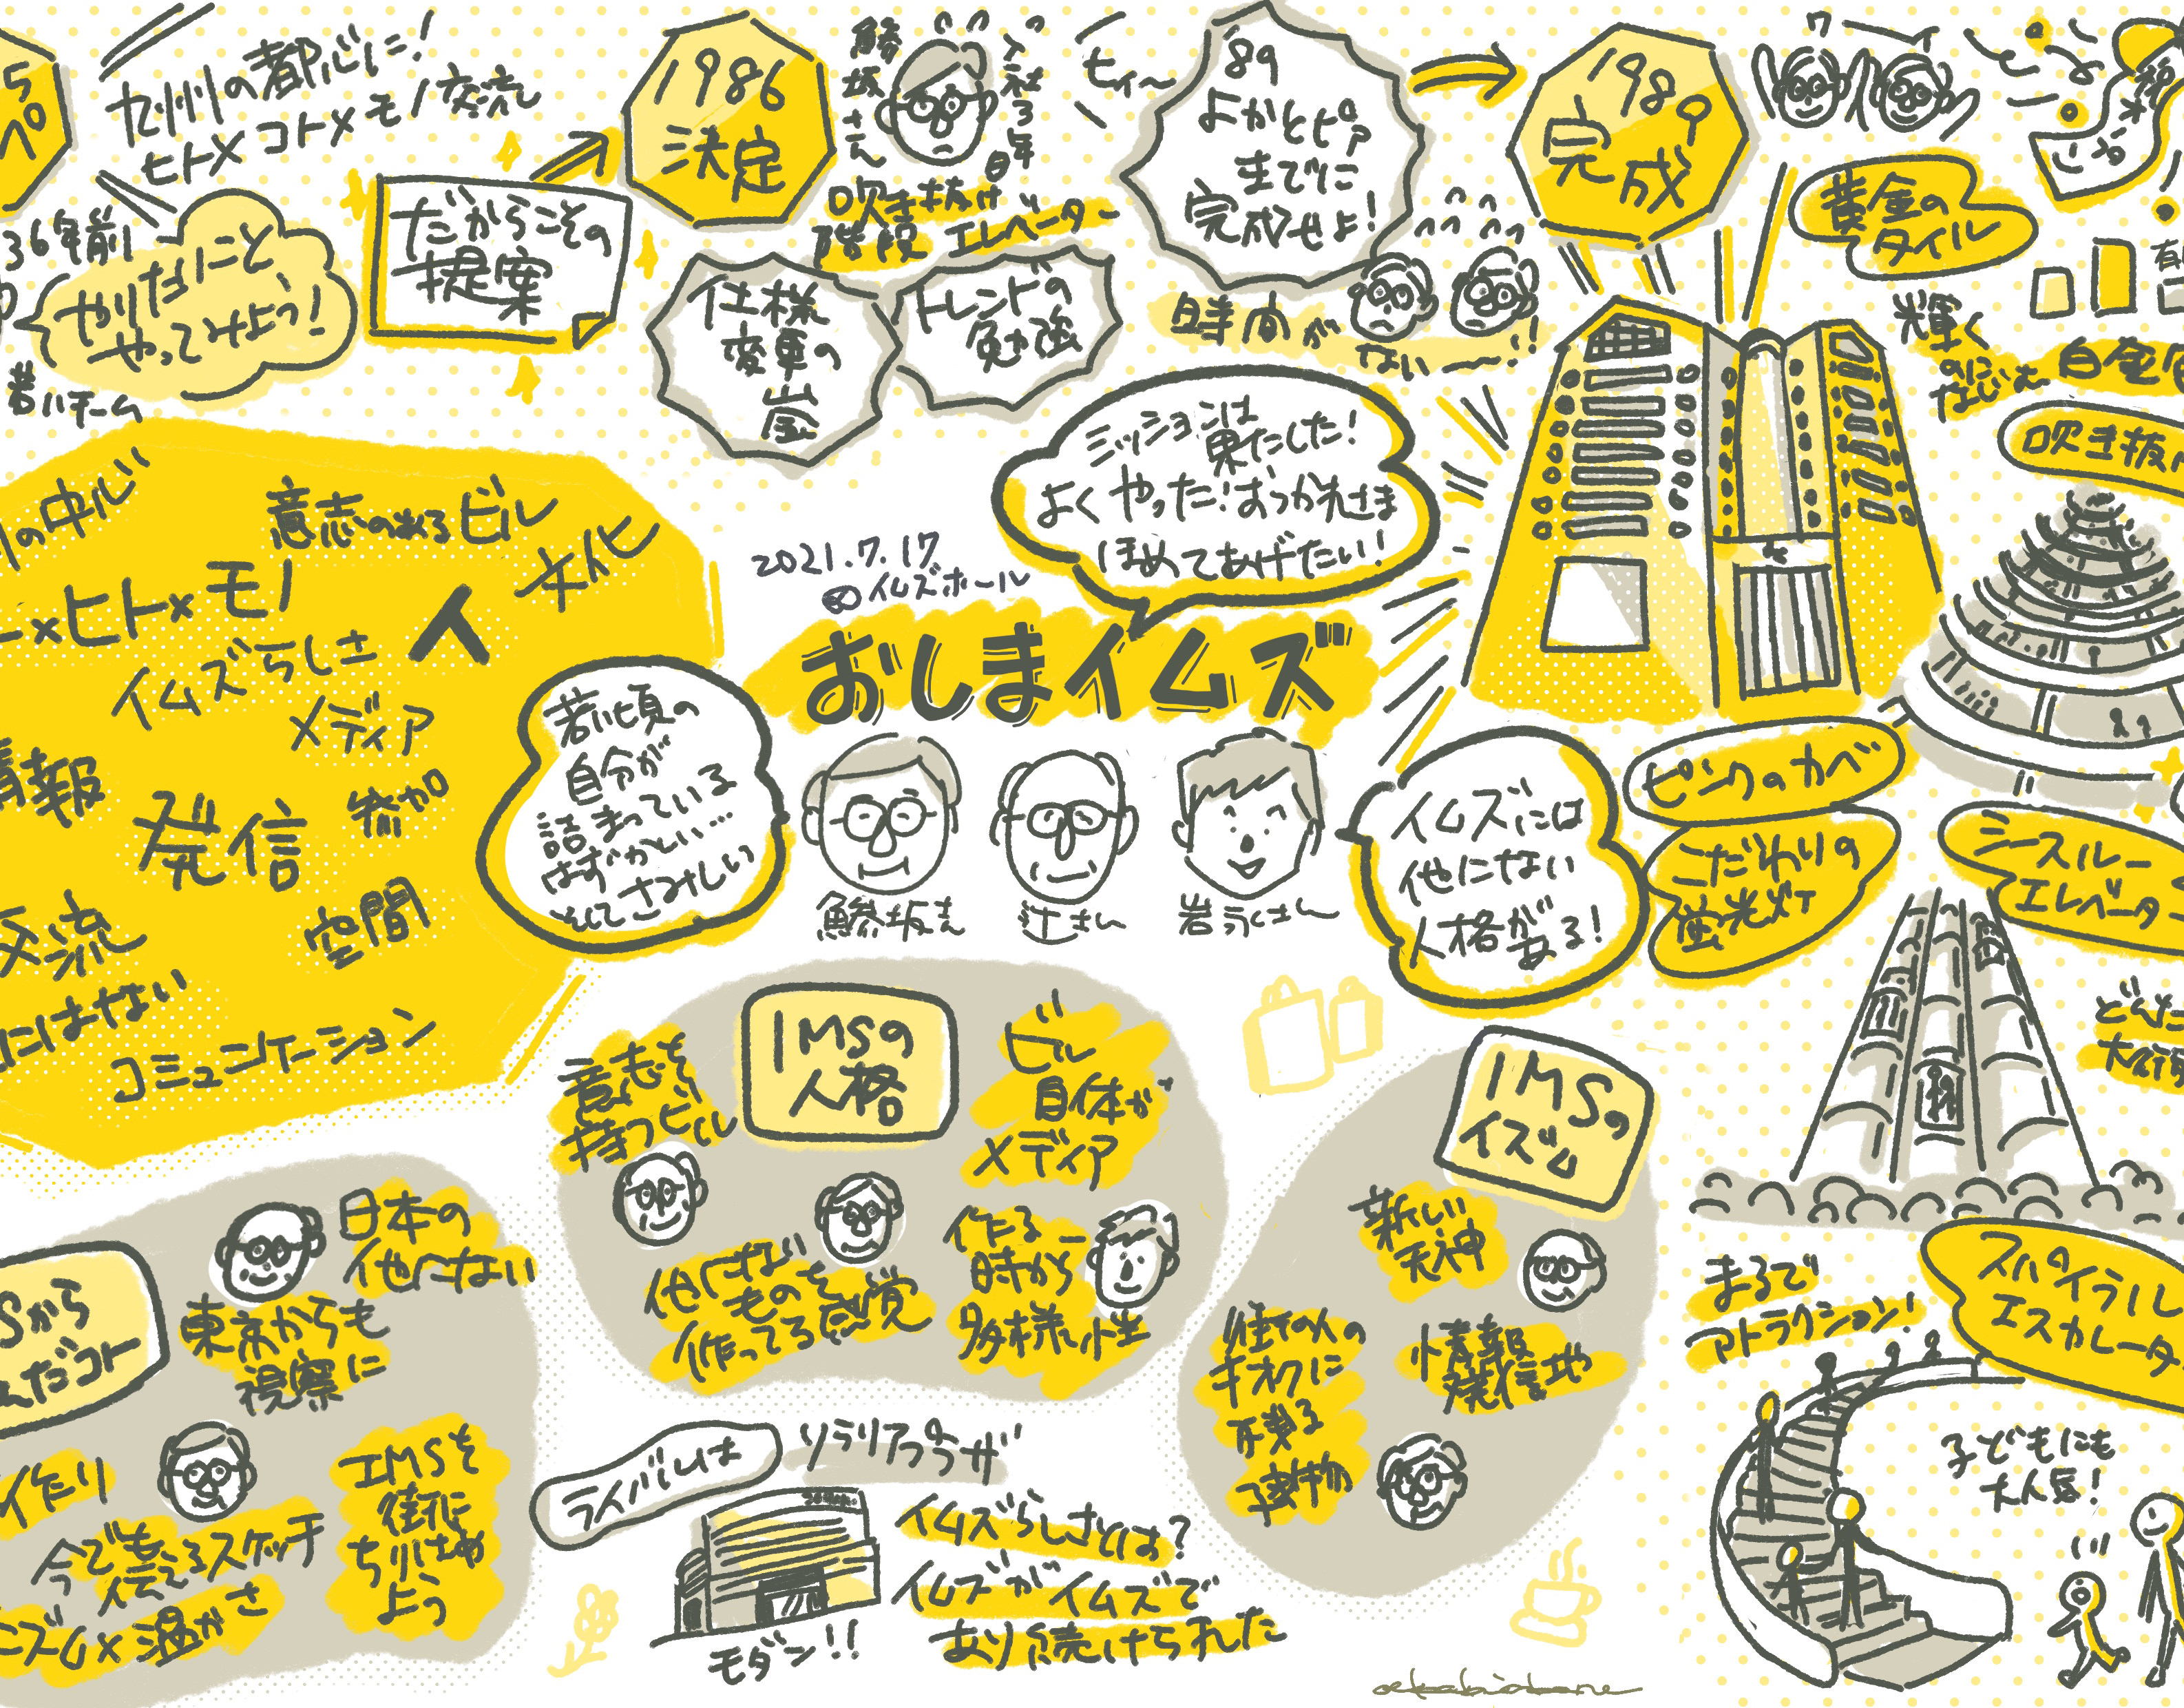 九州の都心に!
ヒト×コト×モノ交流
36年前!
やりたいこと
やってみよう!
若いチーム
だからこその
提案
1986
決定
鯵坂さん
入社3年目
吹き抜け
階段 エレベーター
仕様
変更の
嵐
トレンドの
勉強
ヒィ〜
'89
よかとピア
までに
完成せよ!
時間が
ない〜!!
1989
完成
ワーイ
黄金の
タイル
輝く
のに
吹き抜け
意志のあるビル
文化
×ヒト×モノ
人
イムズらしさ
メディア
情報
発信
参加
交流
空間
にはない
コミュニケーション
2021.7.17
@イムズホール
ミッションは
果たした!
よくやった!おつかれさま
ほめてあげたい!
おしまイムズ
若い頃の
自分が
詰まっている
はずかしい…
そして さみしい
鯵坂さん
辻さん
岩永さん
イムズには
他にない
人格がある!
ピンクのカベ
こだわりの
蛍光灯
シースルー
エレベーター
IMSの
人格
意志を
持つビル
ビル
自体が
メディア
他にない
ものを
作ってる感覚
作る
時から
多様性
IMSの
イズム
新しい
天神
情報
発信地
街の人の
キオクに
残る
建物
Sから
んだコト
日本の
他にない
東京からも
視察に
作り
今でも
伝えるスケッチ
ニズム×温かさ
IMSを
街に
ちりばめ
よう
ライバルは
ソラリアプラザ
モダン!!
イムズらしさとは?
イムズがイムズで
あり続けられた
まるで
アトラクション!
スパイラル
エスカレーター
子どもにも
大人気!